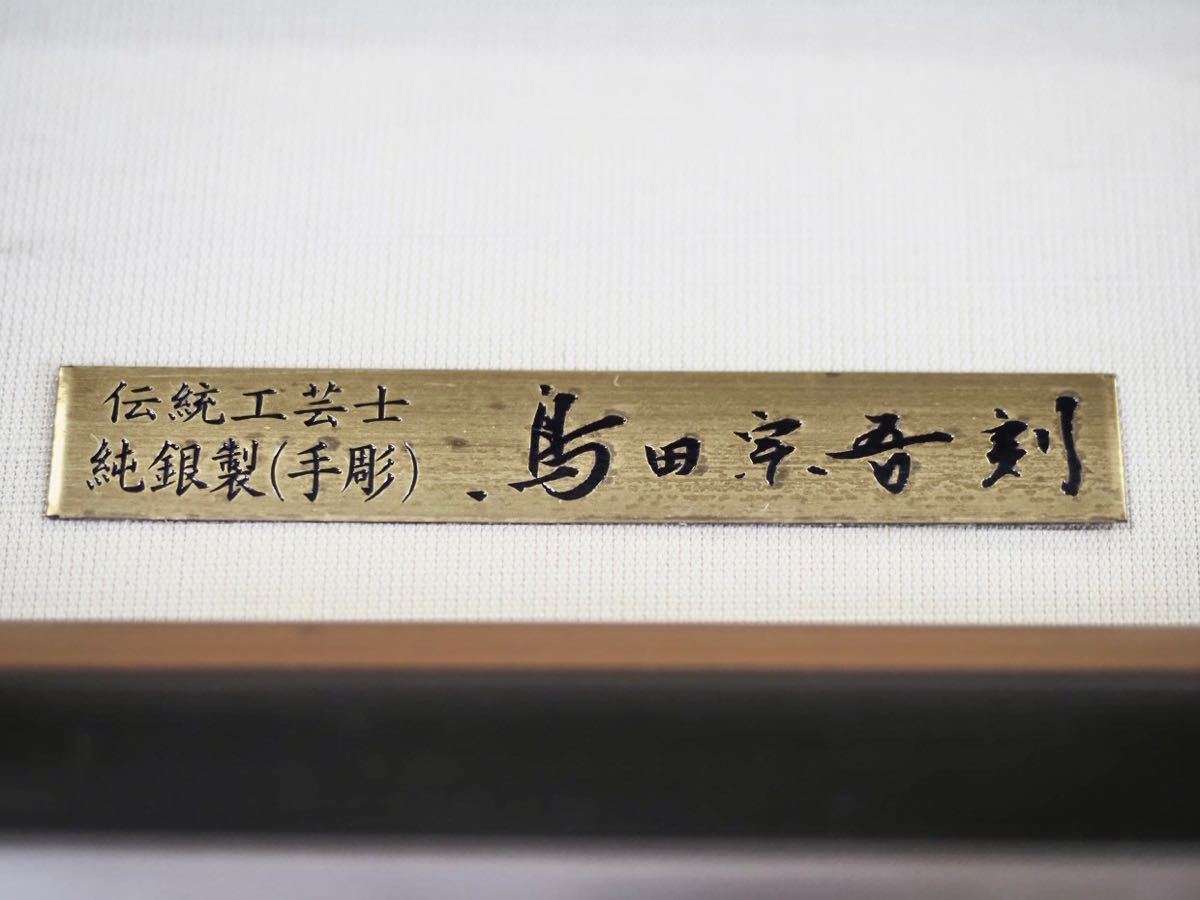 伝統工芸士
純銀製(手彫)
島田宗吾刻